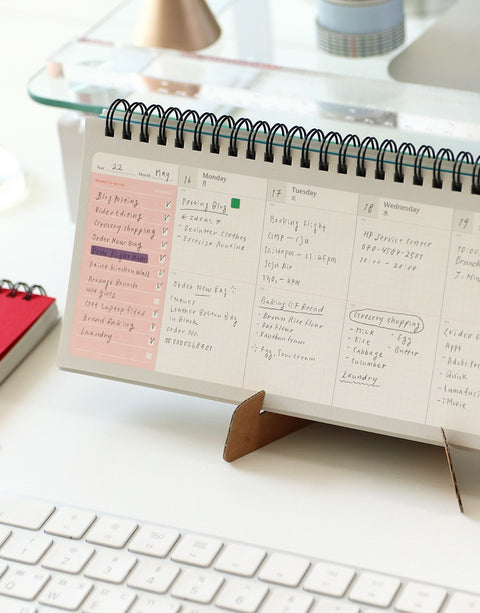 Year 22 Month May
Blog Posting
Video editing
Grocery shopping
Order New Bag
Paint Kitchen Wall
Arrange Brunch
w/e girls
Get Laptop fixed
Bread Baking
Laundry
16 Monday
月
Posting Blog
* Ideas *
- Declutter Clothes
- Exercise Routine
Order New Bag
Leather Boston Bag
in Black
Order No.
17 Tuesday
火
Booking Flight
GMP - CJU
12:40pm - 01:45pm
Jeju Air
Baking G.F Bread
- Brown Rice Flour
- Oat Flour
- Xanthan Gum
* Egg, Sour cream
18 Wednesday
水
HP Service Center
070-4587-2507
10:00 - 20:00
Grocery shopping
- Milk - Egg
- Rice - Butter
- Cabbage
- Cucumber
Laundry
19
10:0
Brunch
(Video E
Apps
- Adobe Pre
- Quick
- Lumafusi
- iMovie